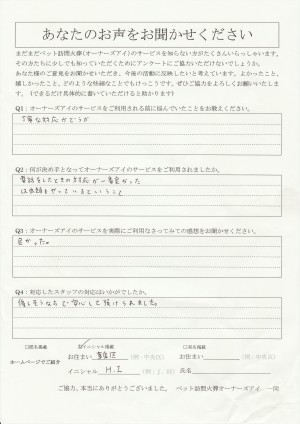 あなたのお声をお聞かせください
まだまだペット訪問火葬(オーナーズアイ)のサービスを知らない方がたくさんいらっしゃいます。
その方たちに少しでも知っていただくためにアンケートにご協力いただけないでしょうか。
あなた様のご意見をお聞かせいただき、今後の活動に反映したいと考えています。よかったこと、
嬉しかったこと、どのような些細なことでもけっこうです。ぜひご協力をよろしくお願いいたします。(できるだけ具体的に書いていただけると助かります)
Q1:オーナーズアイのサービスをご利用される前に悩んでいたことをお教えください。
丁寧な対応かどうか
Q2:何が決め手となってオーナーズアイのサービスをご利用されましたか。
電話をしたときの対応が一番良かった
Q3:オーナーズアイのサービスを実際にご利用なさってみての感想をお聞かせください。
良かった。
Q4:対応したスタッフの対応はいかがでしたか。
優しそうな方で安心して預けられました。
□匿名掲載 ☑イニシャル掲載 □実名掲載
ホームページでご紹介
お住まい (例:中央区) お住まい (例:中央区)
イニシャル H.I (例:J.M) 氏名
ご協力、本当にありがとうございました。 ペット訪問火葬オーナーズアイ 一同